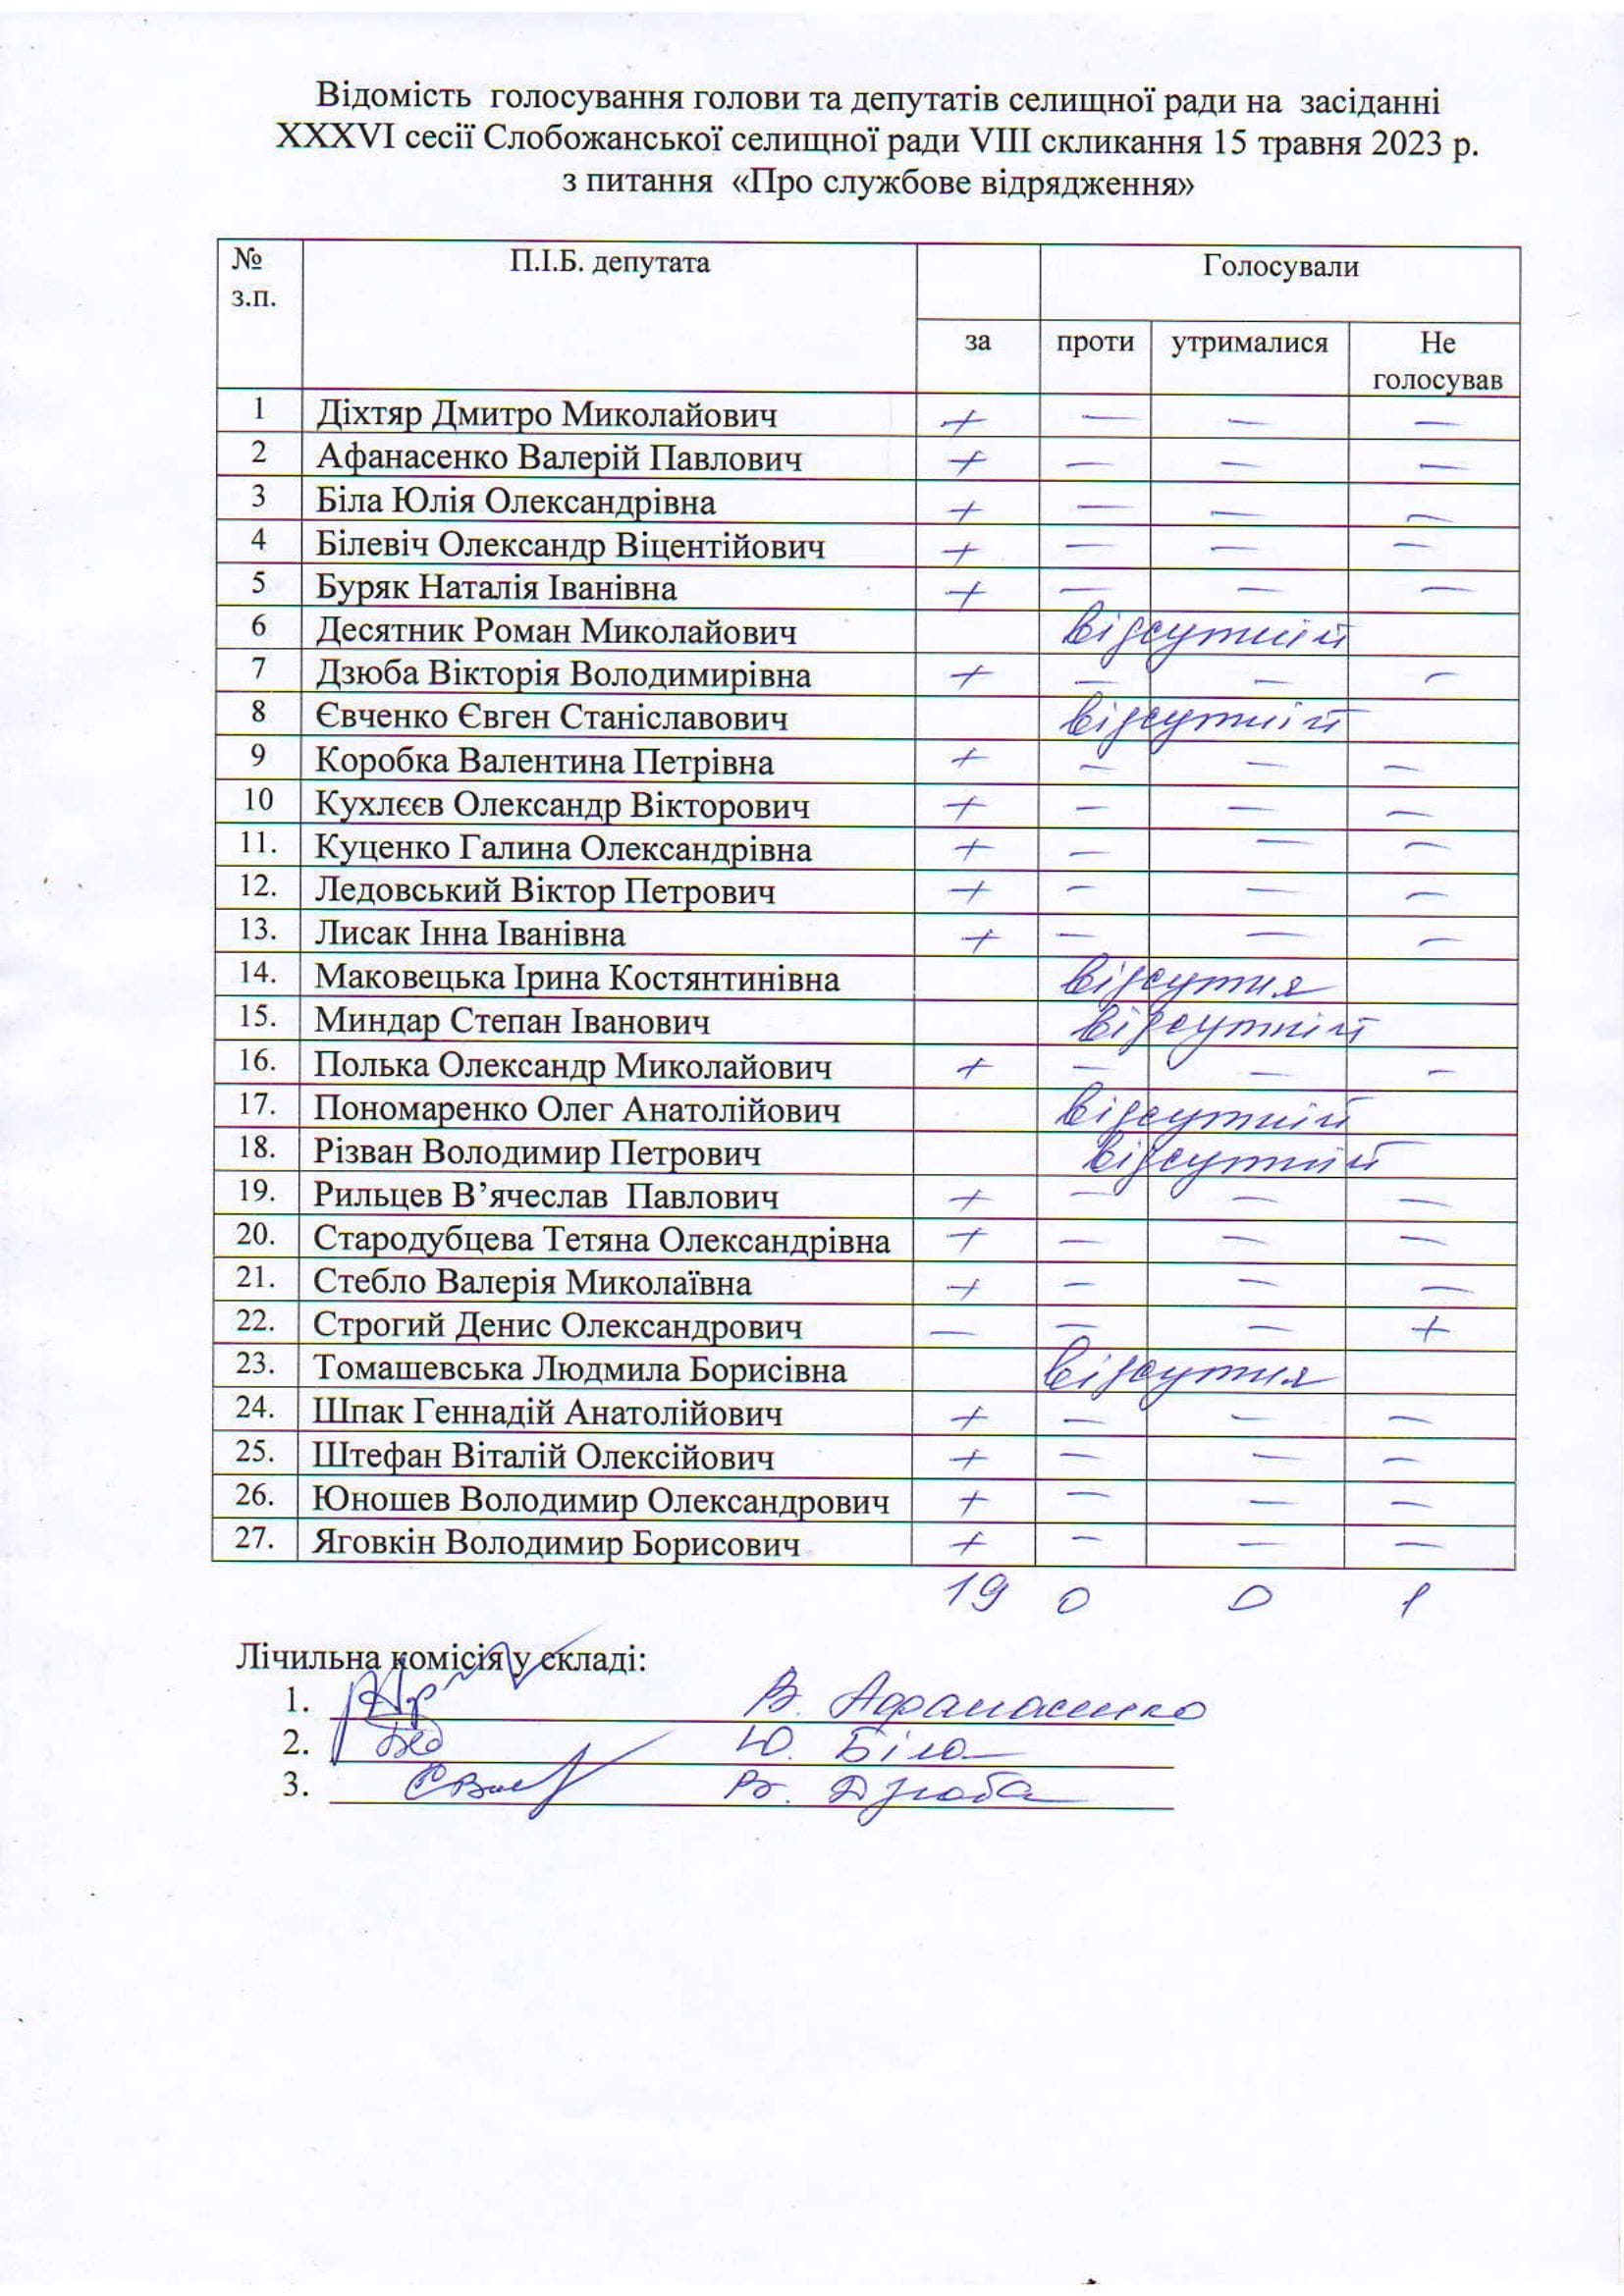 Відомість голосування голови та депутатів селищної ради на засіданні
XXXVI сесії Слобожанської селищної ради VIII скликання 15 травня 2023 р.
з питання «Про службове відрядження»
№ П.І.Б. депутата Голосували
з.п.
за проти утрималися Не
голосував
1 Діхтяр Дмитро Миколайович + — — —
2 Афанасенко Валерій Павлович + — — —
3 Біла Юлія Олександрівна + — — —
4 Білевіч Олександр Віцентійович + — — —
5 Буряк Наталія Іванівна + — — —
6 Десятник Роман Миколайович відсутній
7 Дзюба Вікторія Володимирівна + — — —
8 Євченко Євген Станіславович відсутній
9 Коробка Валентина Петрівна + — — —
10 Кухлєєв Олександр Вікторович + — — —
11. Куценко Галина Олександрівна + — — —
12. Ледовський Віктор Петрович + — — —
13. Лисак Інна Іванівна + — — —
14. Маковецька Ірина Костянтинівна відсутня
15. Миндар Степан Іванович відсутній
16. Полька Олександр Миколайович + — — —
17. Пономаренко Олег Анатолійович відсутній
18. Різван Володимир Петрович відсутній
19. Рильцев В’ячеслав Павлович + — — —
20. Стародубцева Тетяна Олександрівна + — — —
21. Стебло Валерія Миколаївна + — — —
22. Строгий Денис Олександрович — — — +
23. Томашевська Людмила Борисівна відсутня
24. Шпак Геннадій Анатолійович + — — —
25. Штефан Віталій Олексійович + — — —
26. Юношев Володимир Олександрович + — — —
27. Яговкін Володимир Борисович + — — —
19 0 0 1
Лічильна комісія у складі:
1. В. Афанасенко
2. Ю. Біла
3. В. Дзюба